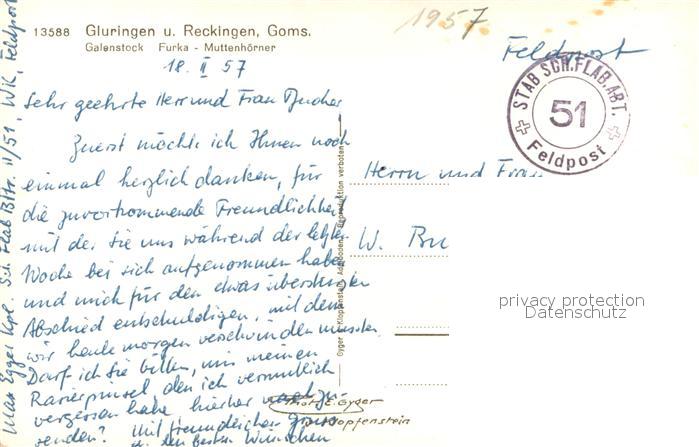 13588 Gluringen u. Reckingen, Goms.
Galenstock Furka - Muttenhörner
1957
Feldpost
18. II 57
STAB SCH.FLAB.ABT.
51
Feldpost
Sehr geehrte Herr und Frau
Zuerst möchte ich Ihnen noch
einmal herzlich danken, für
die zuvorkommende Freundlichkeit
mit der Sie uns während der letzten
Woche bei sich aufgenommen haben
und mich für den etwas überstürzten
Abschied entschuldigen, mit dem
wir heute morgen verschwinden mussten.
Darf ich Sie bitten, mir meinen
Rasierpinsel, den ich vermutlich
vergessen habe, hierher
senden? Mit freundlichen
den besten Wünschen
Max Egger Kpl. Sch Flab Bttr. II/51, WK, Feldpost
Herrn und Frau
W. Bu
Gyger + Klopfenstein, Adelboden, Reproduktion verboten
Phot. E. Gyger
Klopfenstein
privacy protection
Datenschutz